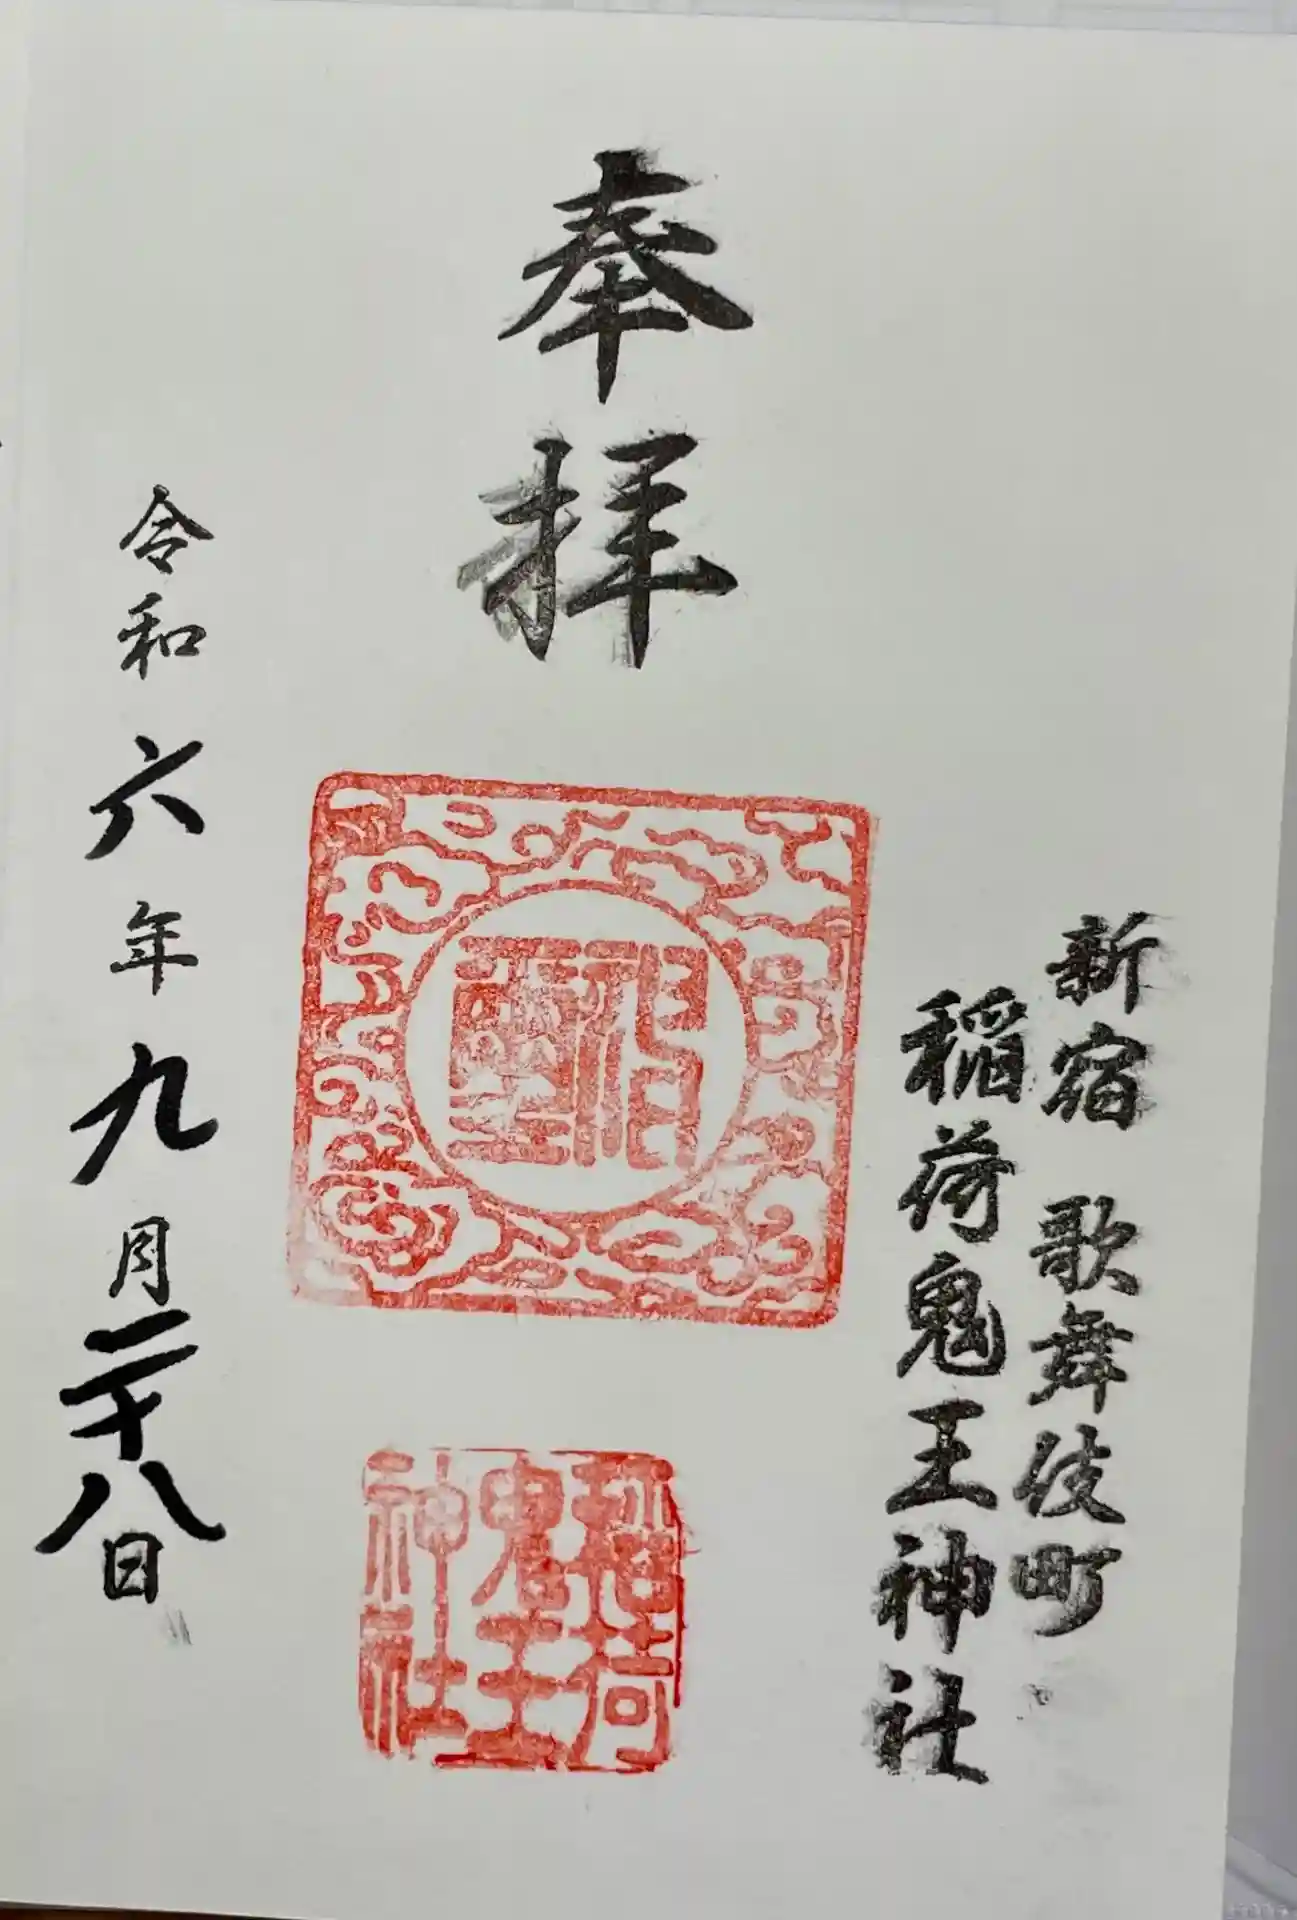 新宿 歌舞伎町
稲荷鬼王神社
奉拝
稲荷
鬼王
神社
令和六年九月二十八日